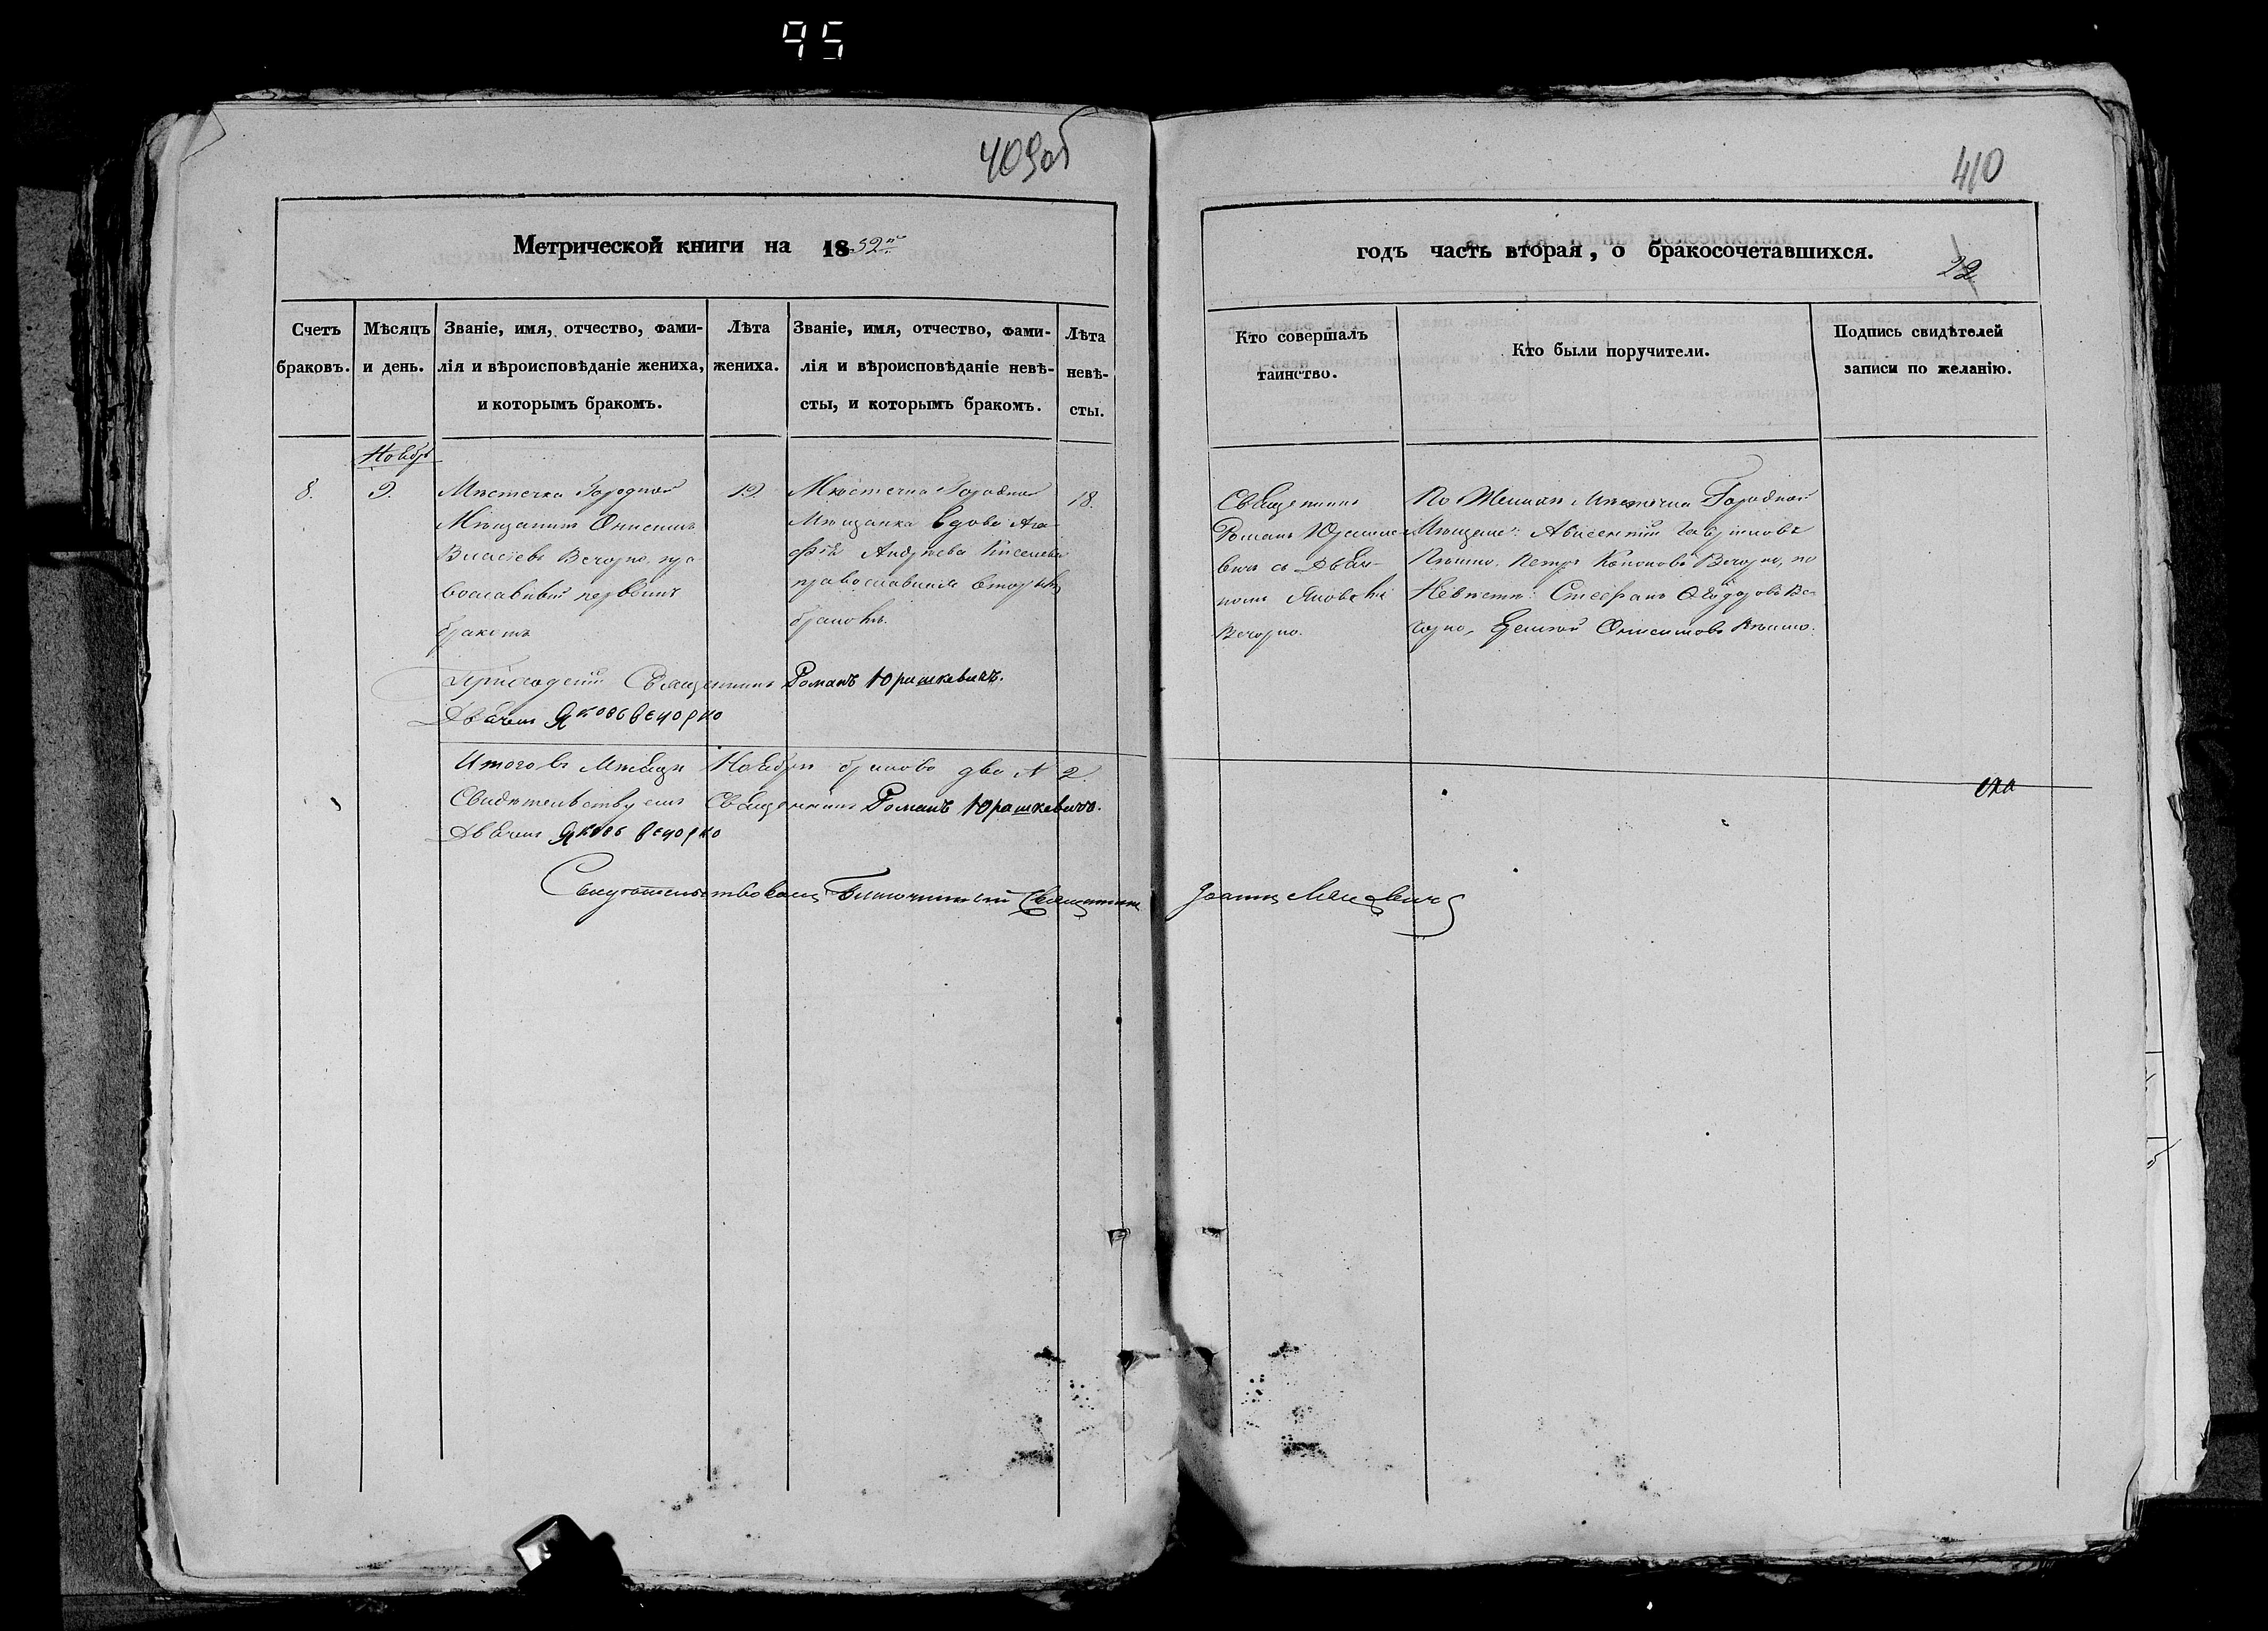 95
409об
410
Метрической книги на 1859го
годъ часть вторая, о бракосочетавшихся.
22
Счетъ
браковъ.
Мѣсяцъ
и день.
Званіе, имя, отчество, фами-
лія и вѣроисповѣданіе жениха,
и которымъ бракомъ.
Лѣта
жениха.
Званіе, имя, отчество, фами-
лія и вѣроисповѣданіе невѣ-
сты, и которымъ бракомъ.
Лѣта
невѣ-
сты.
Кто совершалъ
таинство.
Кто были поручители.
Подпись свидѣтелей
записи по желанію.
Ноябрь
8.
9.
Мѣстечка Городной
Мѣщанинъ Онисимъ
Власіевъ Вечорко, пра-
вославный первымъ
бракомъ
19.
Мѣстечка Городной
Мѣщанка вдова Ага-
фія Андреева
православная вторымъ
бракомъ.
18.
Священникъ
Романъ Юрашке-
вичъ съ Дьяч-
комъ Яковомъ
Вечорко.
По Женихѣ Мѣстечка Городной
Мѣщане: Авксентій Гавриловъ
Петръ Кононовъ Вечорко, по
Невѣстѣ: Стефанъ Ѳеодоровъ Ве-
чорко, Онисимовъ
Приходскій Священникъ Романъ Юрашкевичъ.
Дьячекъ Яковъ Вечорко
Итого въ Мѣсяцѣ Ноябрѣ браковъ два № 2.
Свидѣтельствуемъ Священникъ Романъ Юрашкевичъ.
Дьячекъ Яковъ Вечорко
Свидѣтельствовалъ Благочинный Священникъ Іоаннъ